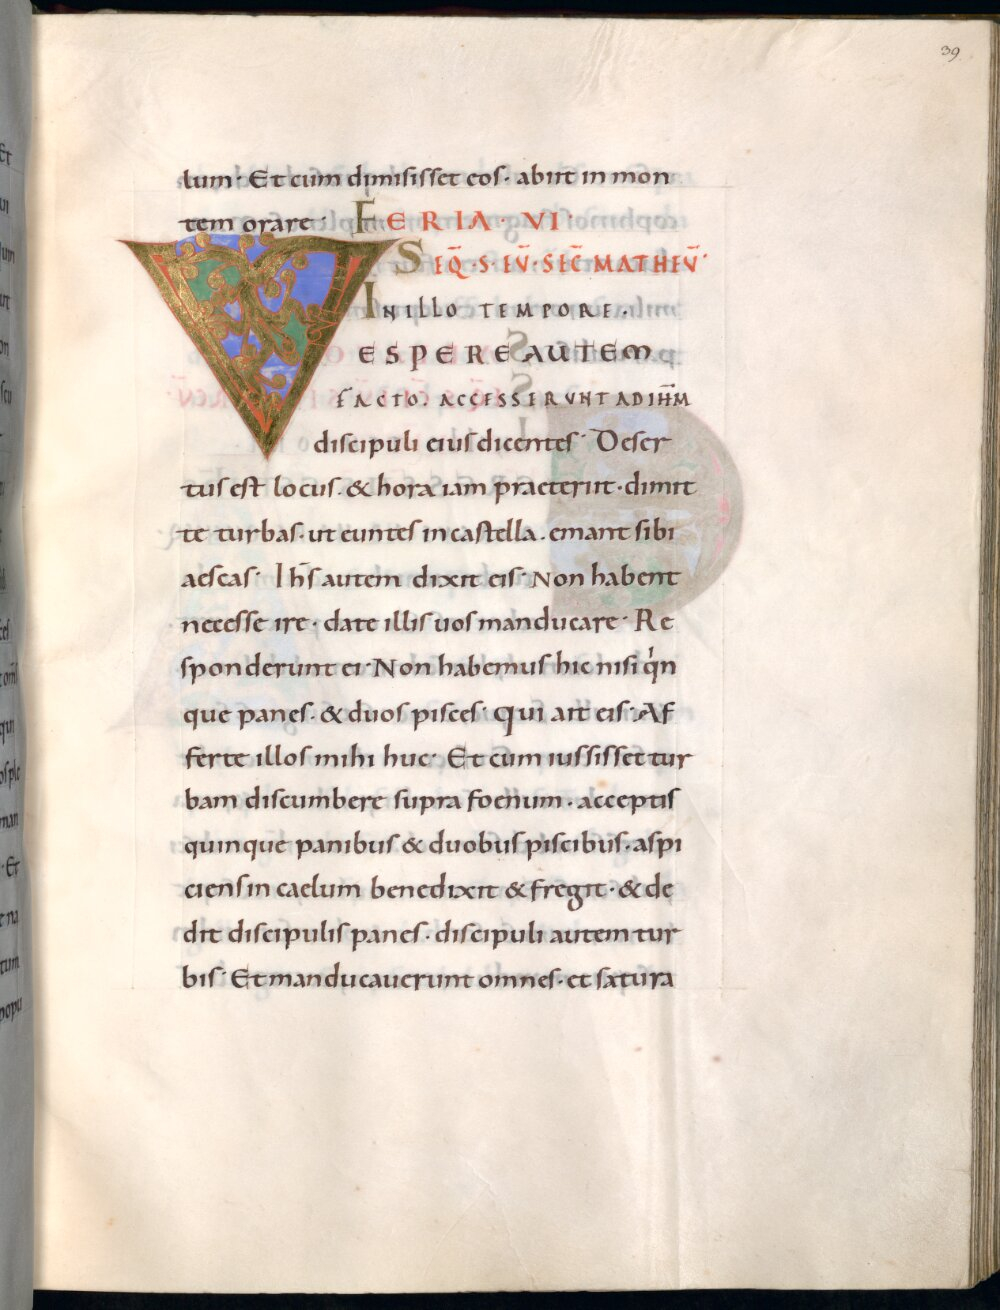 39
lum· Et cum dimisisset eos· abiit in mon
tem orare· FERIA· VI·
SEQ̄·S·EV̄·SEC̄·MATHEV̄·
IN ILLO TEMPORE·
VESPERE AUTEM
FACTO· ACCESSERUNT AD IH̄M
discipuli eius dicentes· Deser
tus est locus· & hora iam praeteriit· dimit
te turbas· ut euntes in castella· emant sibi
aescas· Ih̄s autem dixit eis· Non habent
necesse ire· date illis uos manducare· Re
sponderunt ei· Non habemus hic nisi qin
que panes· & duos pisces· Qui ait eis· Af
ferte illos mihi huc· Et cum iussisset tur
bam discumbere supra foenum· acceptis
quinque panibus & duobus piscibus· aspi
ciens in caelum benedixit & fregit· & de
dit discipulis panes· discipuli autem tur
bis· Et manducauerunt omnes· et satura